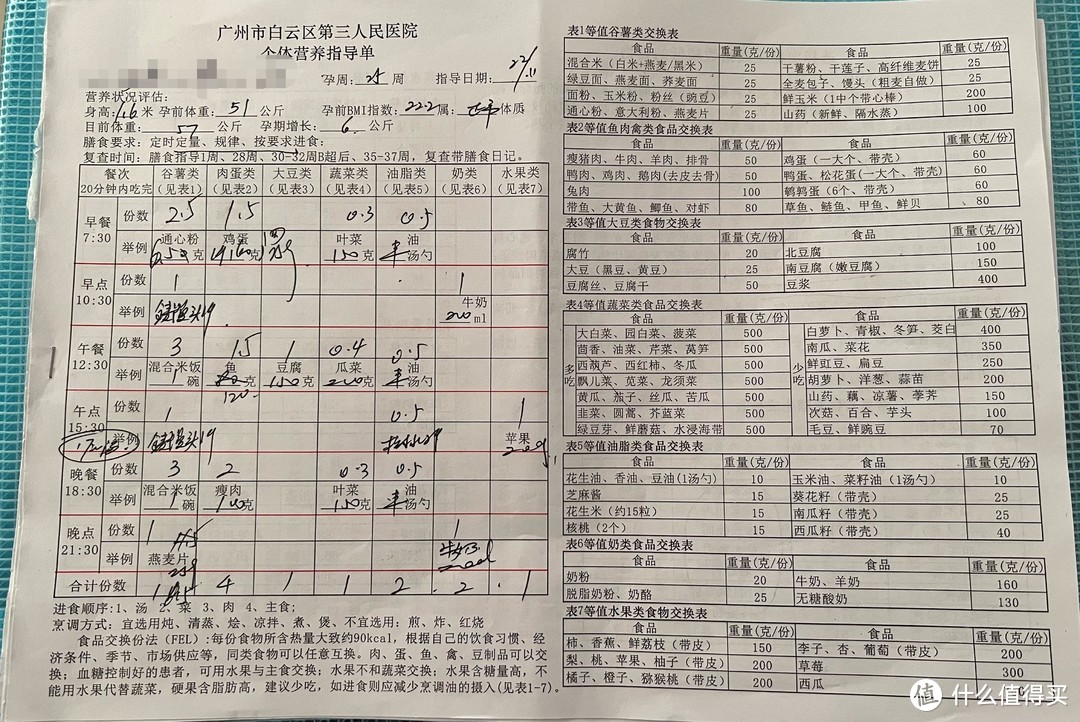 广州市白云区第三人民医院
个体营养指导单
孕周: 25 周 指导日期: 22/11
营养状况评估:
身高: 1.6 米 孕前体重: 51 公斤 孕前BMI指数: 22.2 属: 体质
目前体重: 57 公斤 孕期增长: 6 公斤
膳食要求: 定时定量、规律、按要求进食:
复查时间: 膳食指导1周、28周、30-32周B超后、35-37周, 复查带膳食日记。
餐次 谷薯类 肉蛋类 大豆类 蔬菜类 油脂类 奶类 水果类
20分钟内吃完 (见表1) (见表2) (见表3) (见表4) (见表5) (见表6) (见表7)
早餐 7:30 份数 2.5 1.5 0.3 0.5
举例 通心粉 50克 鸡蛋 克 叶菜 150克 油 汤勺
早点 10:30 份数 1 1
举例 馒头 牛奶 200ml
午餐 12:30 份数 3 1.5 1 0.4 0.5
举例 混合米饭 1碗 鱼 克 120 豆腐 150克 瓜菜 200克 油 汤勺
午点 15:30 份数 1 0.5 1
举例 馒头 苹果 200g
晚餐 18:30 份数 3 2 0.3 0.5
举例 混合米饭 1碗 瘦肉 100克 叶菜 150克 油 汤勺
晚点 21:30 份数 1 1
举例 燕麦片 25g 牛奶 200ml
合计份数 4 1 1 2 2 1
进食顺序:1、汤 2、菜 3、肉 4、主食;
烹调方式: 宜选用炖、清蒸、烩、凉拌、煮、煲、不宜选用: 煎、炸、红烧
食品交换份法(FEL):每份食物所含热量大致约90kcal, 根据自己的饮食习惯、经
济条件、季节、市场供应等, 同类食物可以任意互换。肉、蛋、鱼、禽、豆制品可以交
换; 血糖控制好的患者, 可用水果与主食交换; 水果不和蔬菜交换; 水果含糖量高, 不
能用水果代替蔬菜, 硬果含脂肪高, 建议少吃, 如进食则应减少烹调油的摄入(见表1-7)。
表1等值谷薯类交换表
食品 重量(克/份) 食品 重量(克/份)
混合米(白米+燕麦/黑米) 25 干薯粉、干莲子、高纤维麦饼 25
绿豆面、燕麦面、荞麦面 25 全麦包子、馒头(粗麦自做) 25
面粉、玉米粉、粉丝(豌豆) 25 鲜玉米(1中个带心棒) 200
通心粉、意大利粉、燕麦片 25 山药(新鲜、隔水蒸) 100
表2等值鱼肉禽类食品交换表
食品 重量(克/份) 食品 重量(克/份)
瘦猪肉、牛肉、羊肉、排骨 50 鸡蛋(一大个、带壳) 60
鸭肉、鸡肉、鹅肉(去皮去骨) 50 鸭蛋、松花蛋(一大个、带壳) 60
兔肉 100 鹌鹑蛋(6个、带壳) 60
带鱼、大黄鱼、鲫鱼、对虾 80 草鱼、鲢鱼、甲鱼、鲜贝 80
表3等值大豆类食物交换表
食品 重量(克/份) 食品 重量(克/份)
腐竹 20 北豆腐 100
大豆(黑豆、黄豆) 25 南豆腐(嫩豆腐) 150
豆腐丝、豆腐干 50 豆浆 400
表4等值蔬菜类食品交换表
食品 重量(克/份) 食品 重量(克/份)
多吃 少吃
大白菜、园白菜、菠菜 500 白萝卜、青椒、冬笋、茭白 400
茴香、油菜、芹菜、莴笋 500 南瓜、菜花 350
西葫芦、西红柿、冬瓜 500 鲜豇豆、扁豆 250
飘儿菜、苋菜、龙须菜 500 胡萝卜、洋葱、蒜苗 200
黄瓜、茄子、丝瓜、苦瓜 500 山药、藕、凉薯、荸荠 150
韭菜、圆蒿、芥蓝菜 500 次菇、百合、芋头 100
绿豆芽、鲜蘑菇、水浸海带 500 毛豆、鲜豌豆 70
表5等值油脂类食品交换表
食品 重量(克/份) 食品 重量(克/份)
花生油、香油、豆油(1汤勺) 10 玉米油、菜籽油(1汤勺) 10
芝麻酱 15 葵花籽(带壳) 25
花生米(约15粒) 15 南瓜籽(带壳) 25
核桃(2个) 15 西瓜籽(带壳) 40
表6等值奶类食品交换表
食品 重量(克/份) 食品 重量(克/份)
奶粉 20 牛奶、羊奶 160
脱脂奶粉、奶酪 25 无糖酸奶 130
表7等值水果类食物交换表
食品 重量(克/份) 食品 重量(克/份)
柿、香蕉、鲜荔枝(带皮) 150 李子、杏、葡萄(带皮) 200
梨、桃、苹果、柚子(带皮) 200 草莓 300
橘子、橙子、猕猴桃(带皮) 200 西瓜
值 什么值得买